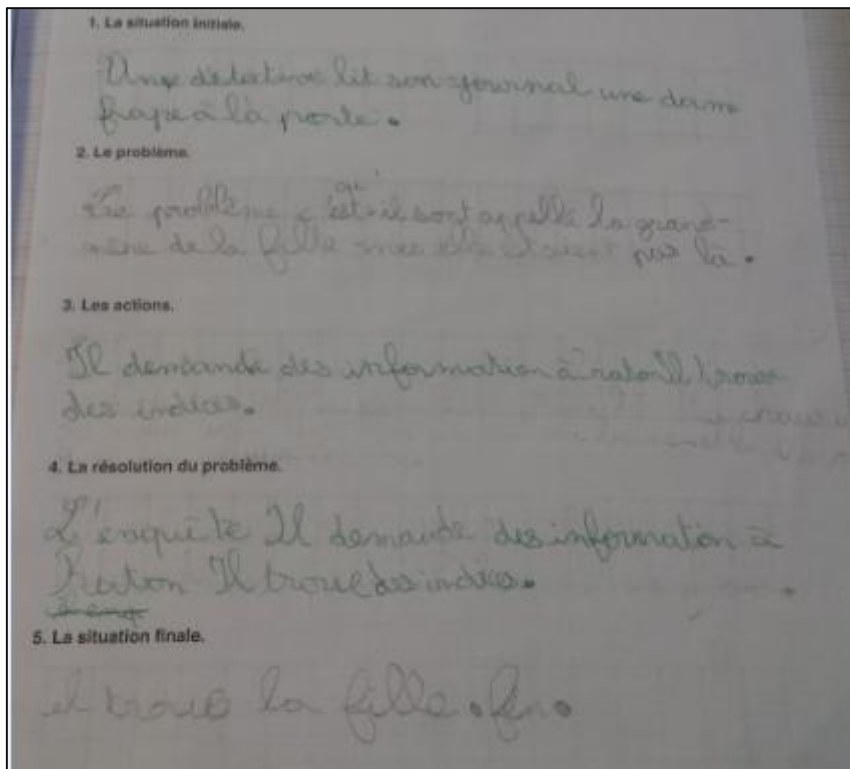 1. La situation initiale.
Une détective lit son journal une dame
frape à la porte.
2. Le problème.
qu'
Le problème c'est il sont appelle la grand-
mère de la fille mes elle pas là.
3. Les actions.
Il demande des information à raton Il trouve
des indices.
4. La résolution du problème.
L'enquête Il demande des information à
Raton Il trouve des indices.
5. La situation finale.
il trouve la fille. fin.